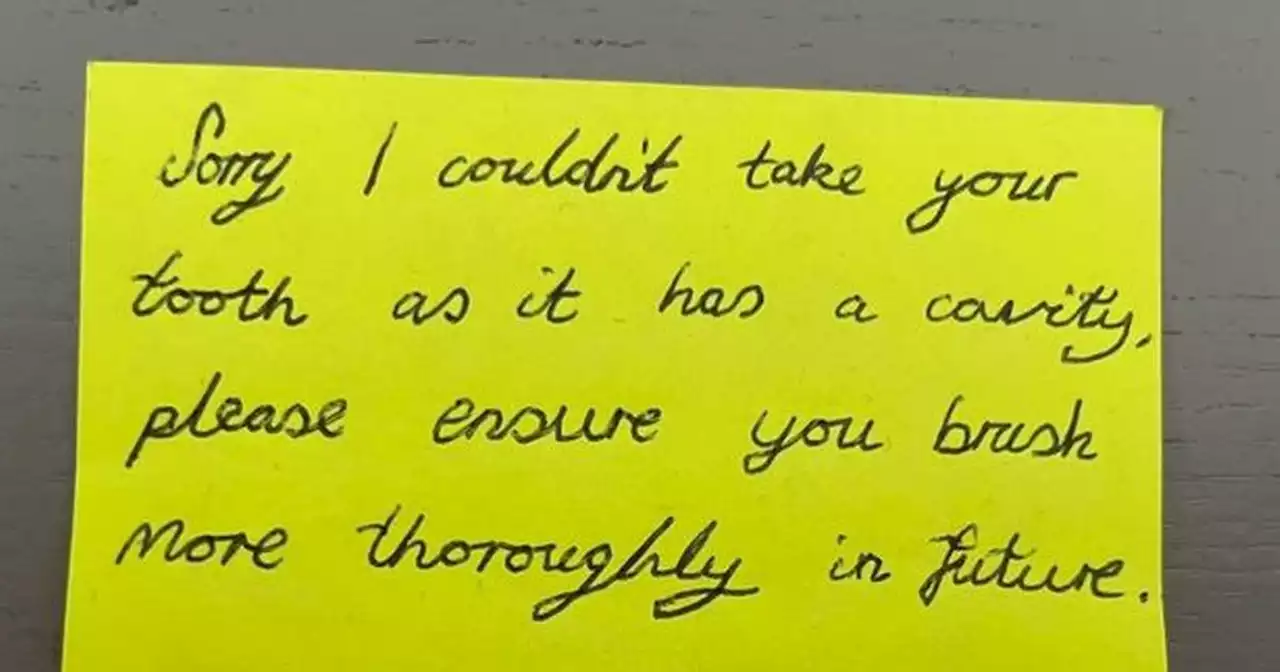 Sorry I couldn't take your
tooth as it has a cavity,
please ensure you brush
more thoroughly in future.